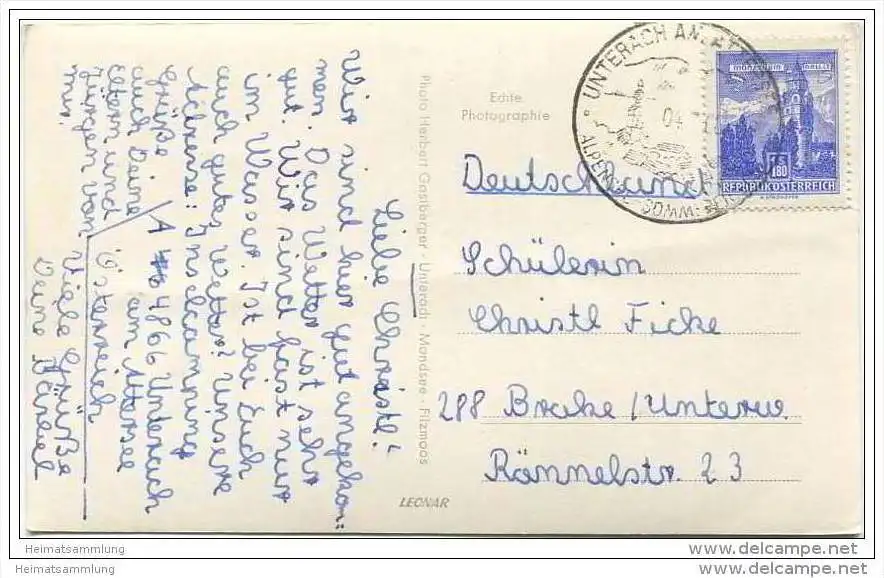 Liebe Christl!
Wir sind hier gut angekom=
men. Das Wetter ist sehr
gut. Wir sind fast nur
im Wasser. Ist bei Euch
auch gutes Wetter? Unsere
Adresse: Inselcamping
A 4866 Unterach
am Attersee
Österreich
Viele Grüße
Deine Bärbel
Grüße
auch Deine
Eltern und
Jürgen von
mir.
Photo Herbert Gastberger - Unterach - Mondsee - Filzmoos
Echte
Photographie
UNTERACH AM ATTERSEE
04.
Deutschland
Schülerin
Christl Ficke
288 Brake/Unterw
Rönnelstr. 23
S 1.80
REPUBLIK ÖSTERREICH
LEONAR
Heimatsammlung
Heimatsammlung
www.delcampe.net
Heimatsammlung